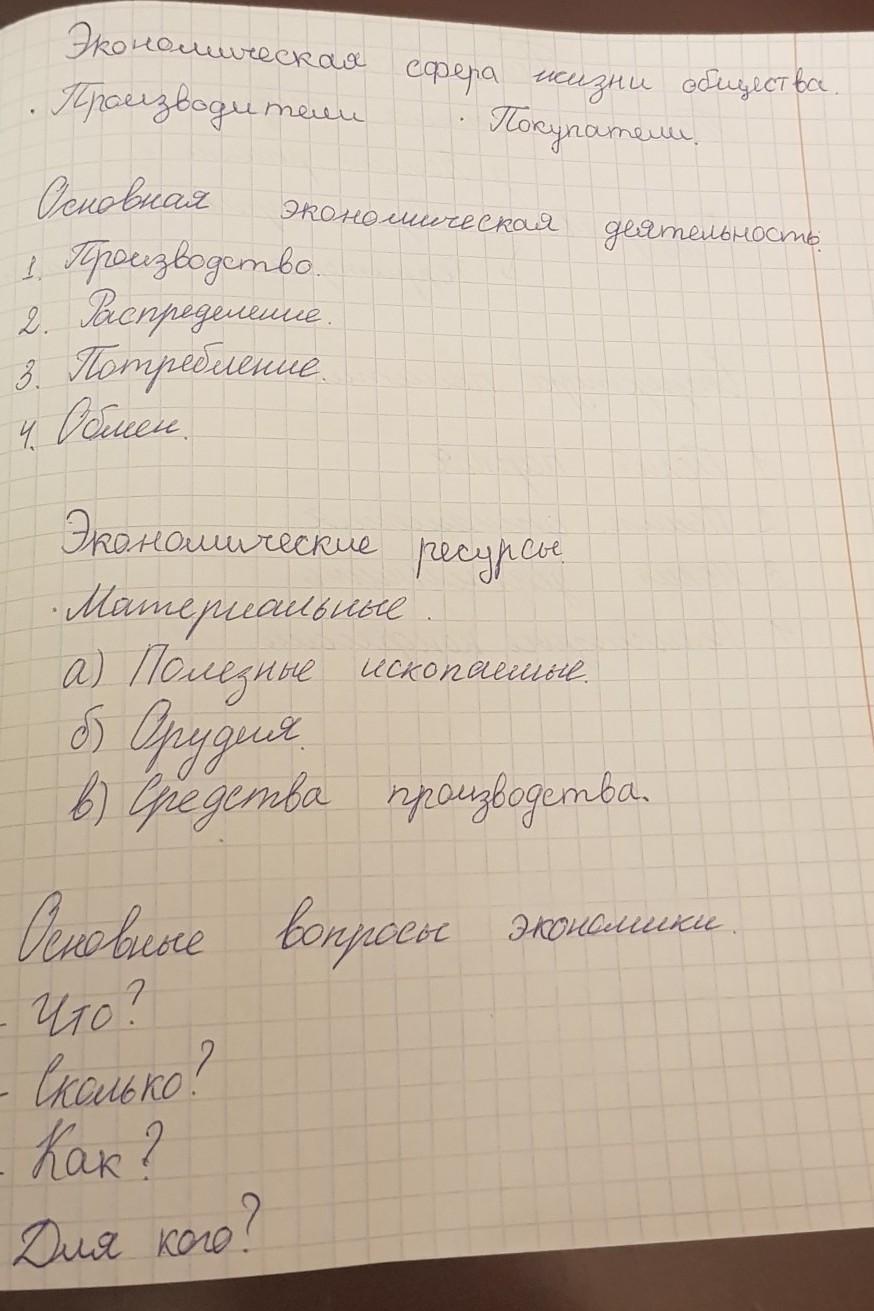 Экономическая сфера жизни общества.
· Производители · Покупатели.
Основная экономическая деятельность.
1. Производство.
2. Распределение.
3. Потребление.
4. Обмен.
Экономические ресурсы.
· Материальные.
а) Полезные ископаемые.
б) Орудия.
в) Средства производства.
Основные вопросы экономики.
- Что?
- Сколько?
- Как?
Для кого?